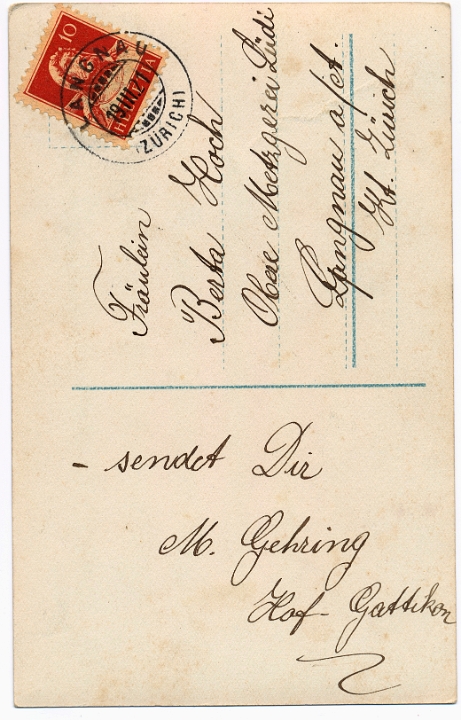 10
HELVETIA
LANGNAU
19.III.27
(ZÜRICH)
Fräulein
Berta Koch
Obere Metzgerei Lüdi
Langnau a/et.
Kt. Zürich
- sendet Dir
M. Gehring
Hof Gattikon